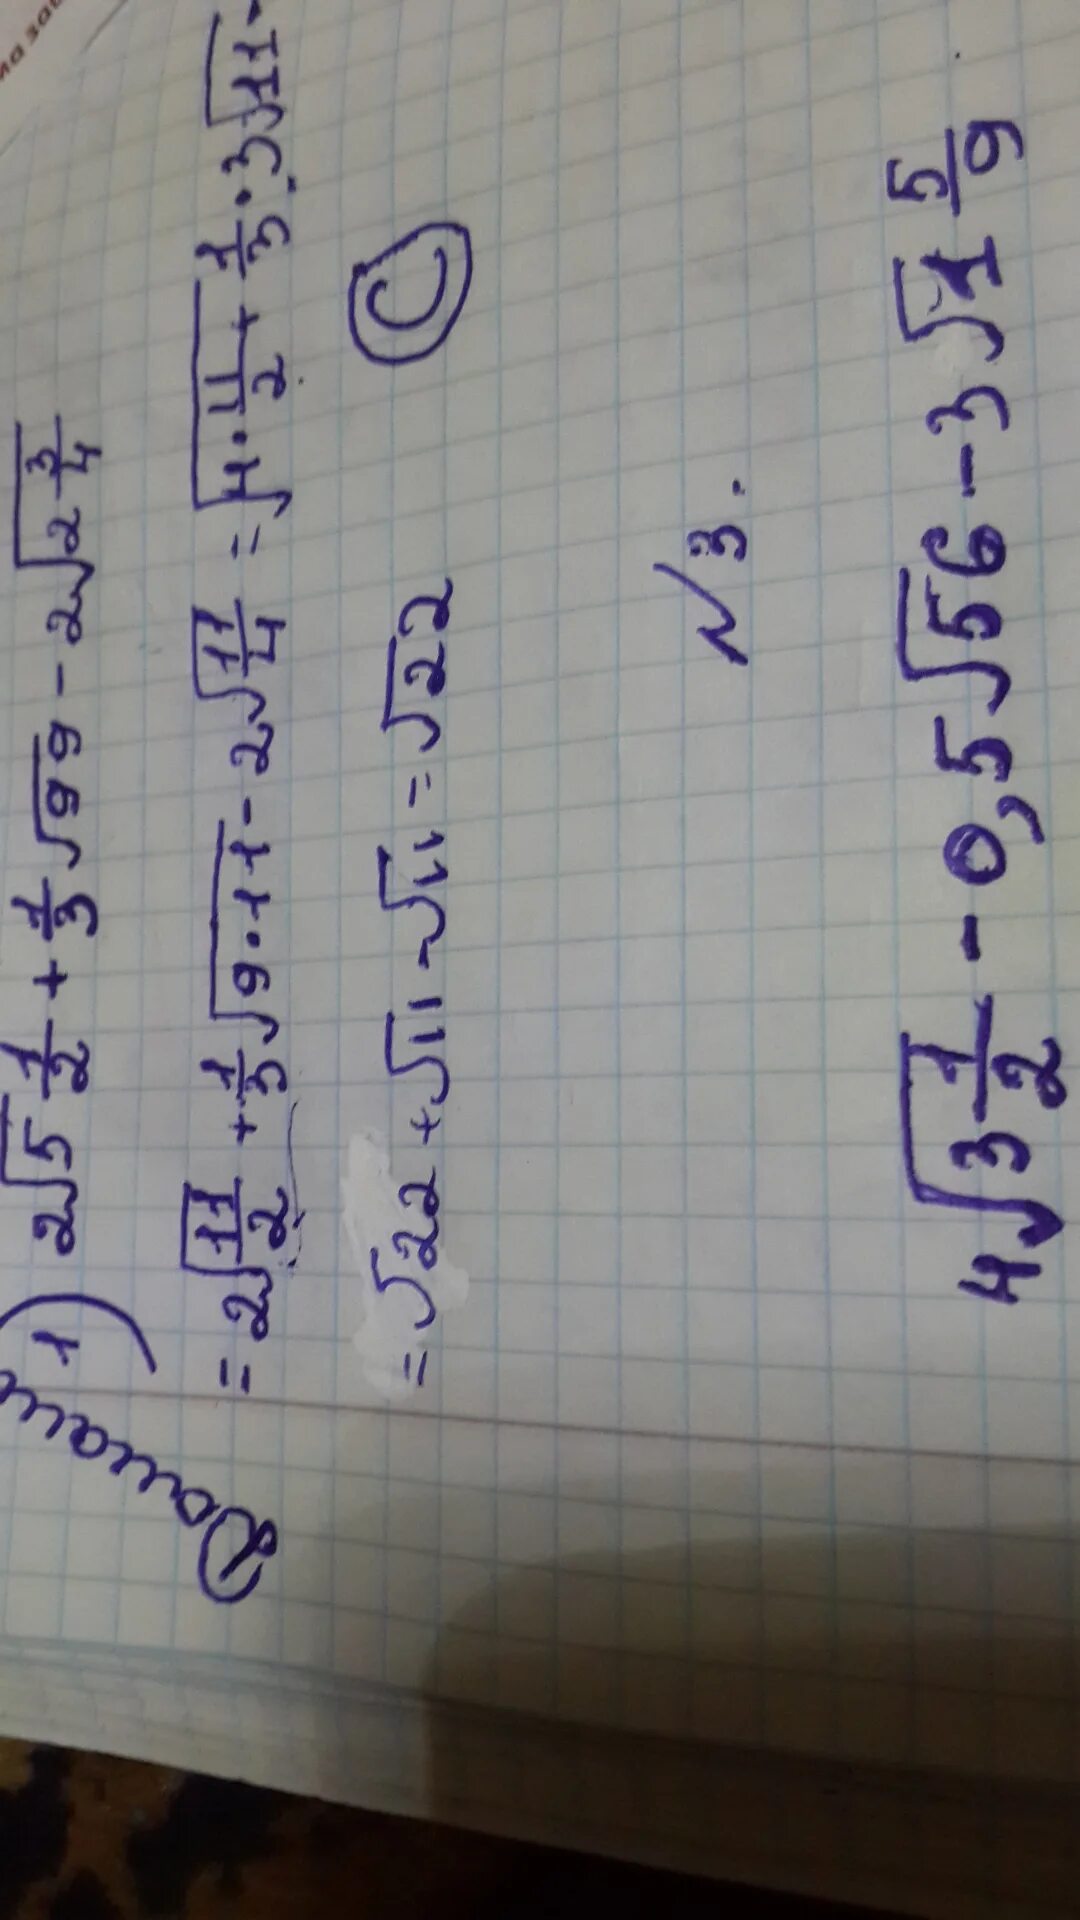 1) 2√5 1/2 + 1/3 √99 - 2√2 3/4
= 2√11/2 + 1/3 √9·11 - 2√11/4 = √4·11/2 + 1/3 · 3√11 -
= √22 + √11 - √11 = √22 C
N 3.
4√3 1/2 - 0,5√56 - 3√1 5/9